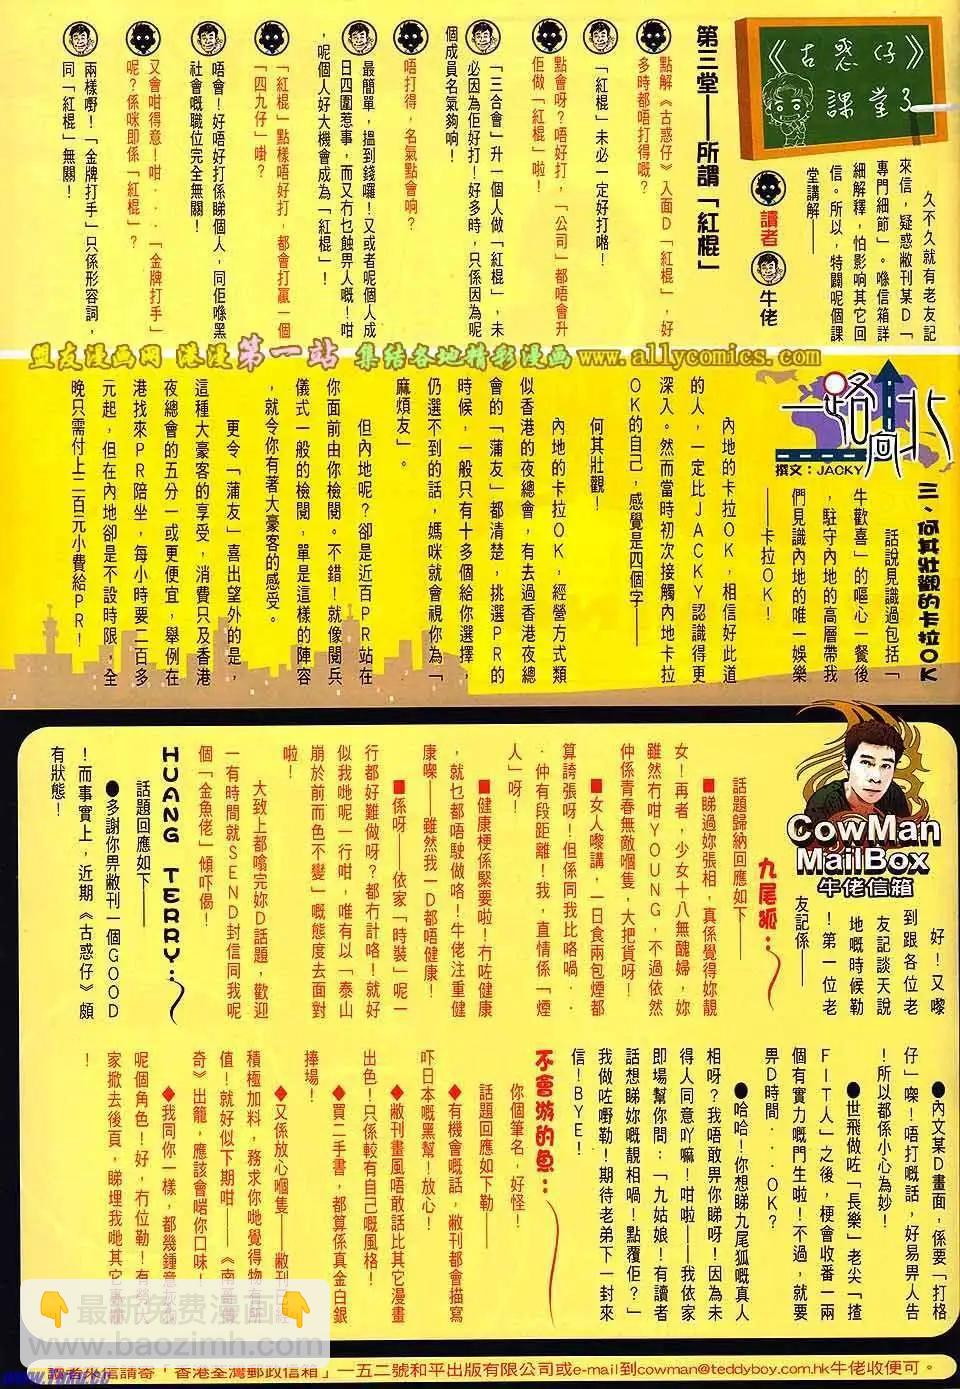 《古惑仔》
課堂3
久不久就有老友記
來信，疑惑敝刊某D「
專門細節」。喺信箱詳
細解釋，怕影響其它回
信。所以，特闢呢個課
堂講解——
讀者
牛佬
第三堂——所謂「紅棍」
點解《古惑仔》入面D「紅棍」，好
多時都唔打得嘅？
「紅棍」未必一定好打嘅！
點會呀？唔好打，「公司」都唔會升
佢做「紅棍」啦！
「三合會」升一個人做「紅棍」，未
必因為佢好打！好多時，只係因為呢
個成員名氣夠响！
唔打得，名氣點會响？
最簡單，搵到錢囉！又或者呢個人成
日四圍惹事，而又冇乜蝕畀人嘅！咁
，呢個人好大機會成為「紅棍」！
「紅棍」點樣唔好打，都會打贏一個
「四九仔」啩？
唔會！好唔好打係睇個人，同佢喺黑
社會嘅職位完全無關！
又會咁得意！咁‥‥「金牌打手」
呢？係咪即係「紅棍」？
兩樣嘢！「金牌打手」只係形容詞，
同「紅棍」無關！
盟友漫画网 港漫第一站 集结各地精彩漫画 www.allycomics.com
一路向北
撰文：JACKY
三、何其壯觀的卡拉OK
話說見識過包括「
牛歡喜」的嘔心一餐後
，駐守內地的高層帶我
們見識內地的唯一娛樂
——卡拉OK！
內地的卡拉OK，相信好此道
的人，一定比JACKY認識得更
深入。然而當時初次接觸內地卡拉
OK的自己，感覺是四個字——
何其壯觀！
內地的卡拉OK，經營方式類
似香港的夜總會，有去過香港夜總
會的「蒲友」都清楚，挑選PR的
時候，一般只有十多個給你選擇，
仍選不到的話，媽咪就會視你為「
麻煩友」。
但內地呢？卻是近百PR站在
你面前由你檢閱。不錯！就像閱兵
儀式一般的檢閱，單是這樣的陣容
，就令你有著大豪客的感受。
更令「蒲友」喜出望外的是，
這種大豪客的享受，消費只及香港
夜總會的五分一或更便宜，舉例在
港找來PR陪坐，每小時要二百多
元起，但在內地卻是不設時限，全
晚只需付上二百元小費給PR！
CowMan
MailBox
牛佬信箱
好！又嚟
到跟各位老
友記談天說
地嘅時候勒
！第一位老
友記係——
九尾狐：
話題歸納回應如下——
■睇過妳張相，真係覺得妳靚
女！再者，少女十八無醜婦，妳
雖然冇咁YOUNG，不過依然
仲係青春無敵嗰隻，大把貨呀！
■女人嚟講，一日食兩包煙都
算誇張呀！但係同我比咯喎‥
‥仲有段距離！我，直情係「煙
人」呀！
■健康梗係緊要啦！冇咗健康
，就乜都唔駛做咯！牛佬注重健
康㗎——雖然我一D都唔健康！
■係呀——依家「時裝」呢一
行都好難做呀？都冇計咯！就好
似我哋呢一行咁，唯有以「泰山
崩於前而色不變」嘅態度去面對
啦！
大致上都噏完妳D話題，歡迎
一有時間就SEND封信同我呢
個「金魚佬」傾吓偈！
HUANG TERRY：
話題回應如下——
●多謝你畀敝刊一個GOOD
！而事實上，近期《古惑仔》頗
有狀態！
●內文某D畫面，係要「打格
仔」㗎！唔打嘅話，好易畀人告
！所以都係小心為妙！
●世飛做咗「長樂」老尖「揸
FIT人」之後，梗會收番一兩
個有實力嘅門生啦！不過，就要
畀D時間‥‥OK？
●哈哈！你想睇九尾狐嘅真人
相呀？我唔敢畀你睇呀！因為未
得人同意吖嘛！咁啦——我依家
即場幫你問：「九姑娘！有讀者
話想睇妳嘅靚相喎！點覆佢？」
我做咗嘢勒！期待老弟下一封來
信！BYE！
不會游的魚：
你個筆名，好怪！
話題回應如下勒——
◆有機會嘅話，敝刊都會描寫
吓日本嘅黑幫！放心！
◆敝刊畫風唔敢話比其它漫畫
出色！只係較有自己嘅風格！
◆買二手書，都算係真金白銀
捧場！
◆又係放心嗰隻——敝刊
積極加料，務求你哋覺得物有所
值！就好似下期咁——《南
奇》出籠，應該會啱你口味！
◆我同你一樣，都幾鍾意
呢個角色！好，冇位勒！有
家掀去後頁，睇埋我哋其它
！
最新免费漫画
www.baozimh.com
讀者來信請寄「香港荃灣郵政信箱」一五二號和平出版有限公司或e-mail到cowman@teddyboy.com.hk牛佬收便可。